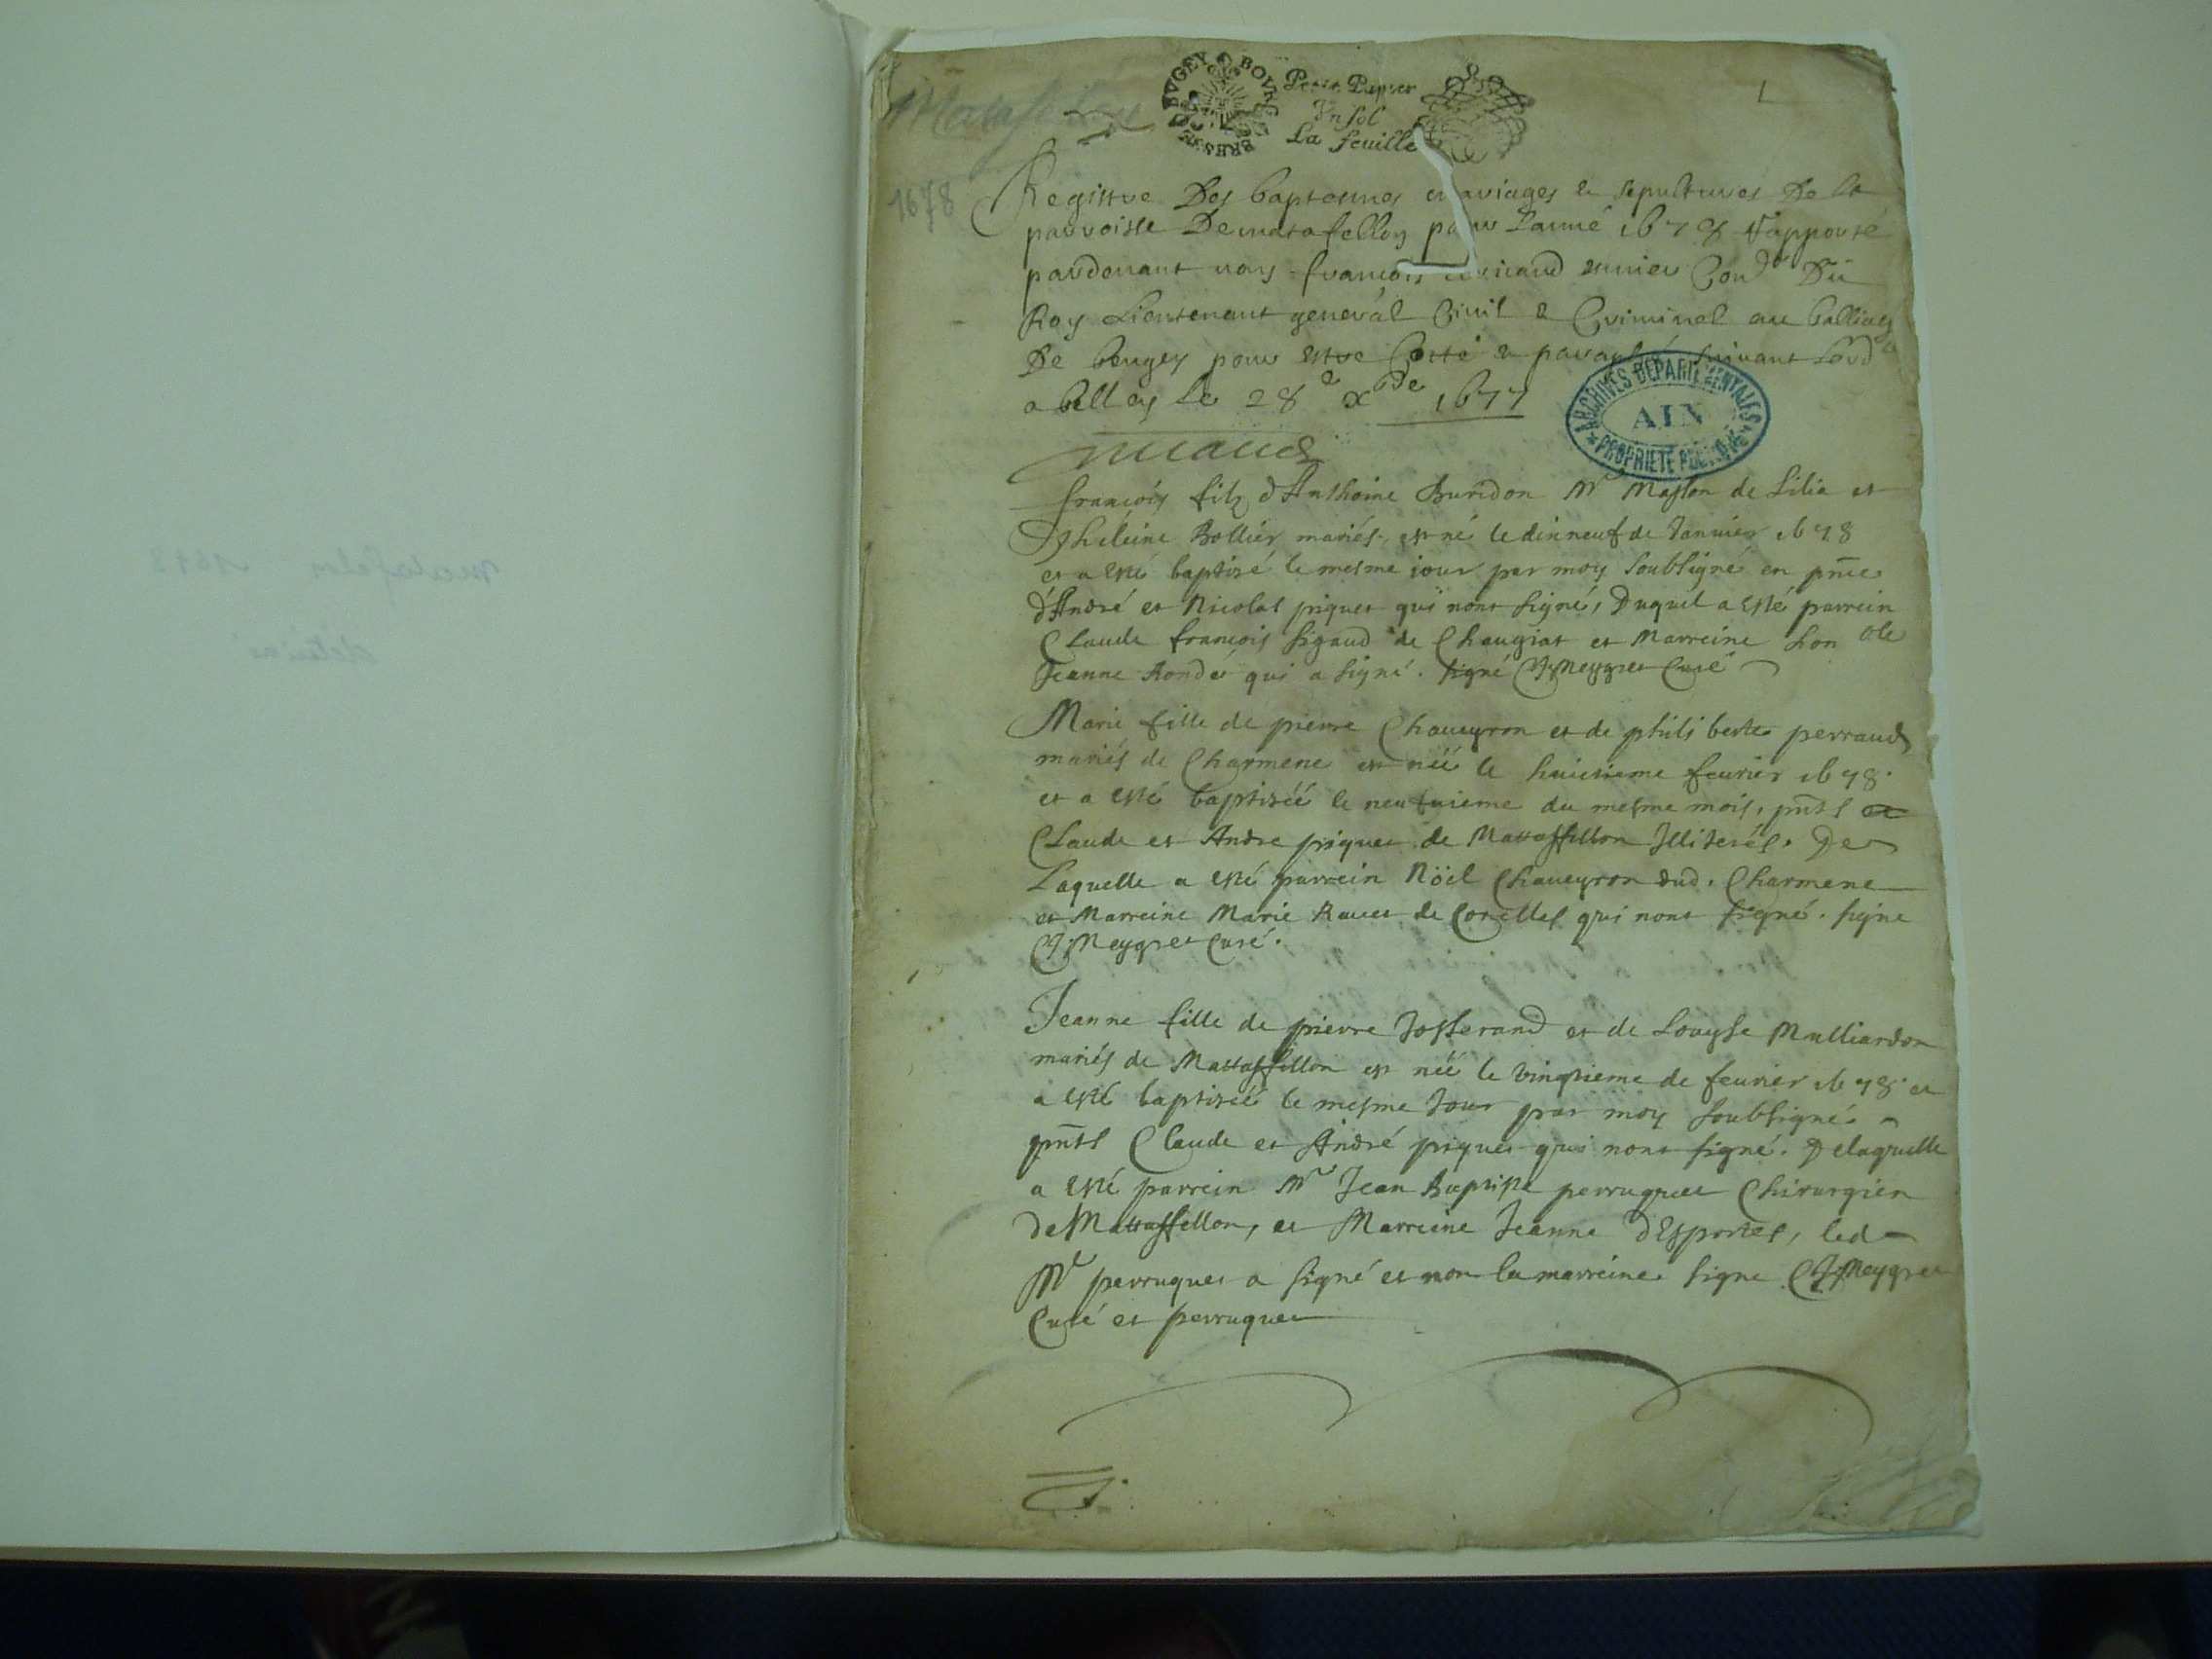 Matafelon
BVGEY BOVRG BRESSE
Petit Papier
Vn sol
La feuille
1
1678
Registre Des baptesmes mariages & sepultures De la
parroisse De matafellon pour Lanné 1678 rapporté
pardeuant nous francois
Roy Lieutenant general Ciuil & Criminel au balliage
De beugey pour estre Cotté & paraphé suiuant Lord
a bellay Le 28e xbre 1677
ARCHIVES DEPARTEMENTALES
AIN
PROPRIETE PUBLIQUE
francois filz d'Anthoine Buridon Mr Masson de Silia et
Gheleine Bollier mariés, est né le dinneuf de Januier 1678
et a esté baptizé le mesme iour par moy soubsigné en pnce
d'André et Nicolas piquet qui nont signé, Duquel a esté parrein
Claude francois sigaud de Chaugiat et Marreine hon ble
Jeanne Rondet qui a signé. signé Meygret Curé
Marie fille de pierre Chaueyron et de philiberte perraud
mariés de Charmene est néé le huictieme feurier 1678.
et a esté baptizéé le neufuieme du mesme mois, pnts et
Claude et Andre piquet de Mattaffellon Illiterés. De
Laquelle a esté parrein Nöel Chaueyron dud. Charmene
et Marreine Marie Rauet de Corcelles qui nont signé. signe
Meygret Curé.
Jeanne fille de pierre Josserand et de Louysse Mulliardon
mariés de Mattaffellon est néé le vingtieme de feurier 1678. et
a esté baptizéé le mesme Jour par moy soubsigné
pnts Claude et André piquet qui nont signé. Delaquelle
a esté parrein Mr Jean Baptiste perruquet Chirurgien
de Mattaffellon, et Marreine Jeanne d'Esportes, led
Mr perruquet a signé et non la marreine signe Meygret
Curé et perruquet